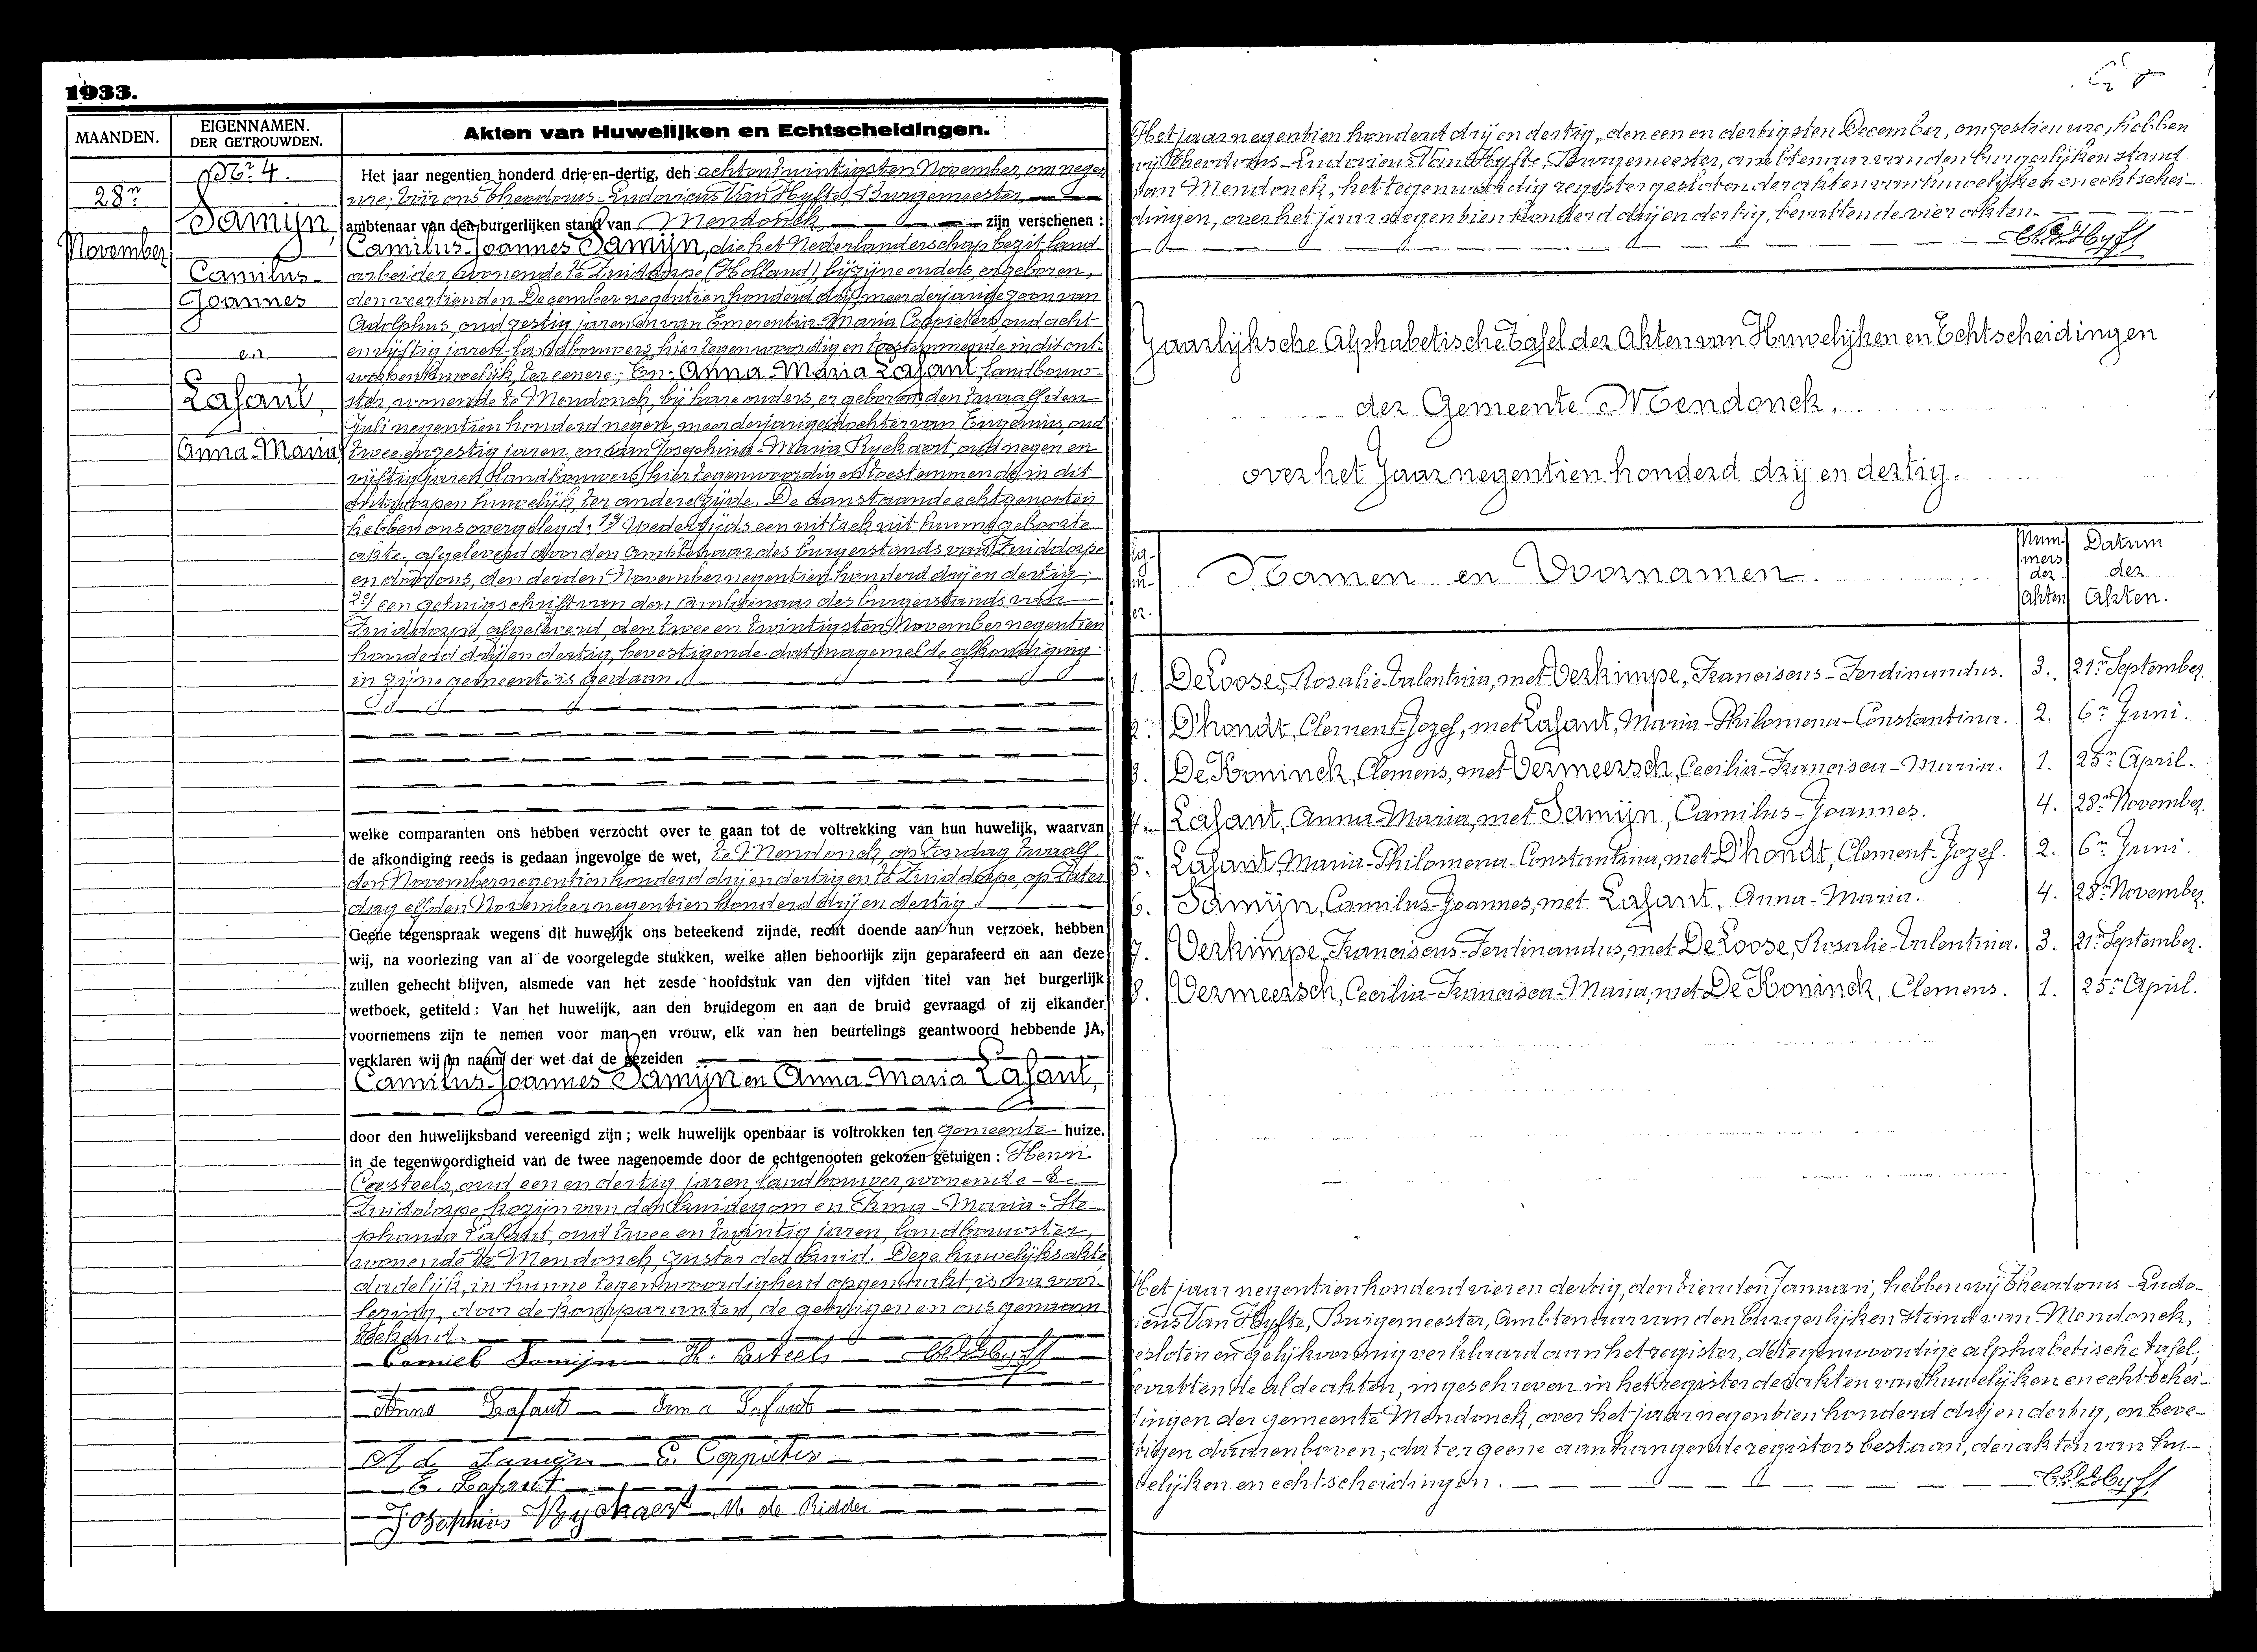 1933.
MAANDEN.
EIGENNAMEN.
DER GETROUWDEN.
Akten van Huwelijken en Echtscheidingen.
Nr 4.
28n
November
Samijn,
Camilus
Joannes
en
Lafaut,
Anna-Maria
Het jaar negentien honderd drie-en-dertig, den achtentwintigsten November, om negen
ure, vóór ons Theodorus-Ludovicus Van Hyfte, Burgemeester
ambtenaar van den burgerlijken stand van Mendonck zijn verschenen :
Camilus-Joannes Samijn, die het Nederlanderschap bezit, land-
arbeider, wonende te Zuiddorpe (Holland), bij zijne ouders, er geboren,
den veertienden December negentien honderd drij, meerderjarige zoon van
Adolphus, oud zestig jaren en van Emerentia-Maria Coppieters, oud acht
en vijftig jaren, landbouwers, hier tegenwoordig en toestemmende in dit ont-
worpen huwelijk, ter eenere; En: Anna-Maria Lafaut, landbouw-
ster, wonende te Mendonck, bij hare ouders, er geboren den twaalfden
Juli negentien honderd negen, meerderjarige dochter van Eugenius, oud
twee en zestig jaren, en van Josephina-Maria Ryckaert, oud negen en
vijftig jaren, landbouwers, hier tegenwoordig en toestemmende in dit
ontworpen huwelijk, ter andere zijde. De aanstaande echtgenoten
hebben ons overgelegd: 1o/ Wederzijds een uittrek uit hunne geboorte
akte, afgeleverd door den Ambtenaar des burgerstands van Zuiddorpe
en door ons, den derden November negentien honderd drij en dertig;
2o/ een getuigschrift van den Ambtenaar des burgerstands van
Zuiddorpe, afgeleverd, den twee en twintigsten November negentien
honderd drij en dertig, bevestigende dat nagemelde afkondiging
in zijne gemeente is gedaan.
welke comparanten ons hebben verzocht over te gaan tot de voltrekking van hun huwelijk, waarvan
de afkondiging reeds is gedaan ingevolge de wet, te Mendonck, op Zondag twaalf
den November negentien honderd drij en dertig en te Zuiddorpe, op Zater
dag elfden November negentien honderd drij en dertig.
Geene tegenspraak wegens dit huwelijk ons beteekend zijnde, recht doende aan hun verzoek, hebben
wij, na voorlezing van al de voorgelegde stukken, welke allen behoorlijk zijn geparafeerd en aan deze
zullen gehecht blijven, alsmede van het zesde hoofdstuk van den vijfden titel van het burgerlijk
wetboek, getiteld : Van het huwelijk, aan den bruidegom en aan de bruid gevraagd of zij elkander
voornemens zijn te nemen voor man en vrouw, elk van hen beurtelings geantwoord hebbende JA,
verklaren wij in naam der wet dat de gezeiden
Camilus-Joannes Samijn en Anna-Maria Lafaut,
door den huwelijksband vereenigd zijn ; welk huwelijk openbaar is voltrokken ten gemeente huize,
in de tegenwoordigheid van de twee nagenoemde door de echtgenooten gekozen getuigen : Henri
Casteels, oud een en dertig jaren, landbouwer, wonende te
Zuiddorpe, kozijn van den bruidegom en Irma-Maria-Ste-
phania Lafaut, oud twee en twintig jaren, landbouwster,
wonende te Mendonck, zuster der bruid. Deze huwelijksakte
dadelijk, in hunne tegenwoordigheid opgemaakt, is na voor-
lezing, door de komparanten, de getuigen en ons genaam
tekend.
Camiel Samijn H. Casteels
Anna Lafaut Irma Lafaut
Ad. Samijn E. Coppieters
E. Lafaut
Josephina Ryckaert M de Ridder
Het jaar negentien honderd drij en dertig, den een en dertigsten December, om zestien ure, hebben
wij Theodorus-Ludovicus Van Hyfte, Burgemeester, ambtenaar van den burgerlijken stand
van Mendonck, het tegenwoordig register gesloten der akten van huwelijken en echtschei-
dingen, over het jaar negentien honderd drij en dertig, bevattende vier akten.
Jaarlijksche Alphabetische Tafel der Akten van Huwelijken en Echtscheidingen
der Gemeente Mendonck,
over het Jaar negentien honderd drij en dertig.
Namen en Voornamen.
Num
mers
der
Akten
Datum
der
Akten.
1. De Loose, Rosalie-Valentina, met Verkimpe, Franciscus-Ferdinandus. 3. 21n September.
2. D'hondt, Clement-Jozef, met Lafaut, Maria-Philomena-Constantina. 2. 6n Juni.
3. De Koninck, Clemens, met Vermeersch, Cecilia-Francisca-Maria. 1. 25n April.
4. Lafaut, Anna-Maria, met Samijn, Camilus-Joannes. 4. 28n November.
5. Lafaut, Maria-Philomena-Constantina, met D'hondt, Clement-Jozef. 2. 6n Juni.
6. Samijn, Camilus-Joannes, met Lafaut, Anna-Maria. 4. 28n November.
7. Verkimpe, Franciscus-Ferdinandus, met De Loose, Rosalie-Valentina. 3. 21n September.
8. Vermeersch, Cecilia-Francisca-Maria, met De Koninck, Clemens. 1. 25n April.
Het jaar negentien honderd vier en dertig, den tienden Januari, hebben wij Theodorus-Ludo-
icus Van Hyfte, Burgemeester, Ambtenaar van den burgerlijken stand van Mendonck,
esloten en gelijkvormig verklaard aan het register, de tegenwoordige alphabetische tafel,
evattende al de akten, ingeschreven in het register der akten van huwelijken en echtschei-
dingen der gemeente Mendonck, over het jaar negentien honderd drij en dertig, en beve-
tigen daarenboven, dat er geene aanhangende registers bestaan, der akten van hu-
welijken en echtscheidingen.